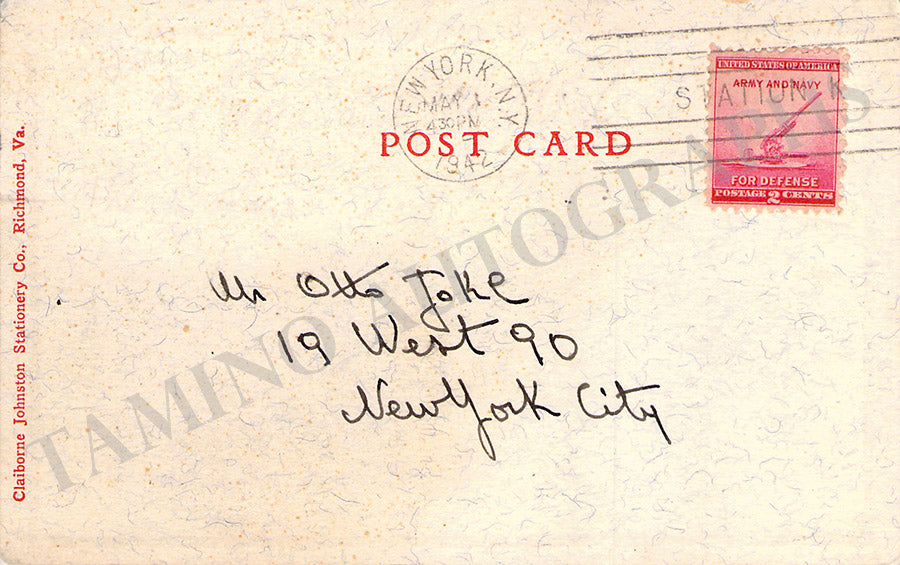 NEW YORK, N.Y.
MAY 1
4 30 PM
1942
STATION K
UNITED STATES OF AMERICA
ARMY AND NAVY
FOR DEFENSE
POSTAGE 2 CENTS
POST CARD
Claiborne Johnston Stationery Co., Richmond, Va.
Mr Otto Jokl
19 West 90
New York City
TAMINO AUTOGRAPHS